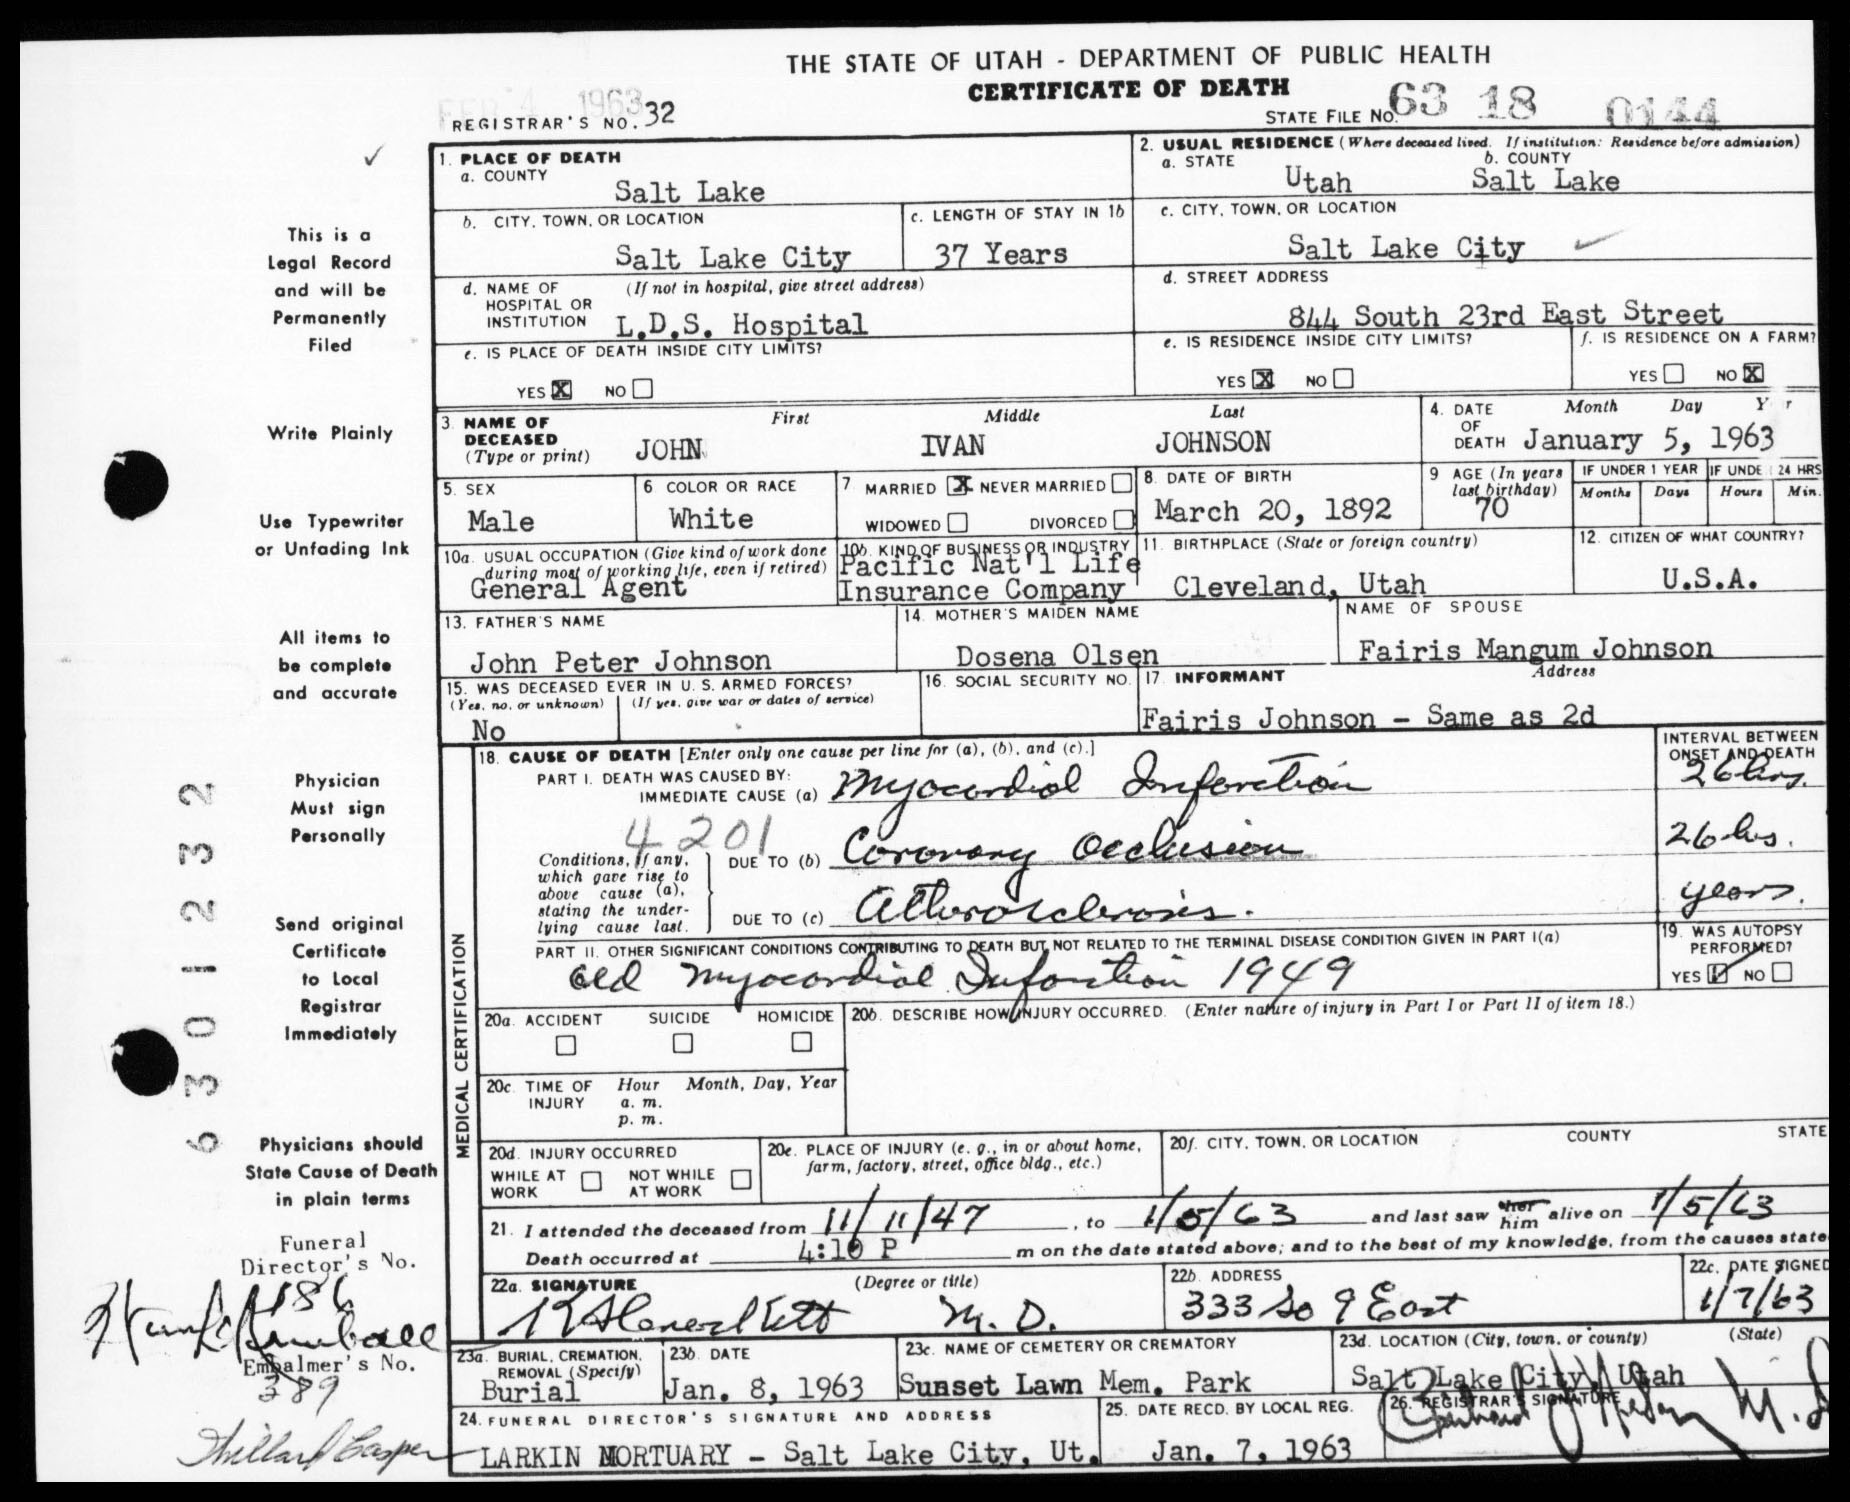 THE STATE OF UTAH - DEPARTMENT OF PUBLIC HEALTH
CERTIFICATE OF DEATH
FEB 4 1963
REGISTRAR'S NO. 32
STATE FILE NO. 63 18 0144
1. PLACE OF DEATH
a. COUNTY
Salt Lake
2. USUAL RESIDENCE (Where deceased lived. If institution: Residence before admission)
a. STATE b. COUNTY
Utah Salt Lake
b. CITY, TOWN, OR LOCATION
Salt Lake City
c. LENGTH OF STAY IN 1b
37 Years
c. CITY, TOWN, OR LOCATION
Salt Lake City
d. NAME OF HOSPITAL OR INSTITUTION (If not in hospital, give street address)
L.D.S. Hospital
d. STREET ADDRESS
844 South 23rd East Street
e. IS PLACE OF DEATH INSIDE CITY LIMITS?
YES X NO
e. IS RESIDENCE INSIDE CITY LIMITS?
YES X NO
f. IS RESIDENCE ON A FARM?
YES NO X
3. NAME OF DECEASED (Type or print)
First Middle Last
JOHN IVAN JOHNSON
4. DATE OF DEATH
Month Day Y r
January 5, 1963
5. SEX
Male
6 COLOR OR RACE
White
7 MARRIED X NEVER MARRIED
WIDOWED DIVORCED
8. DATE OF BIRTH
March 20, 1892
9 AGE (In years last birthday)
70
IF UNDER 1 YEAR
Months Days
IF UNDE 24 HRS
Hours Min.
10a. USUAL OCCUPATION (Give kind of work done during most of working life, even if retired)
General Agent
10b. KIND OF BUSINESS OR INDUSTRY
Pacific Nat'l Life
Insurance Company
11. BIRTHPLACE (State or foreign country)
Cleveland, Utah
12. CITIZEN OF WHAT COUNTRY?
U.S.A.
13. FATHER'S NAME
John Peter Johnson
14. MOTHER'S MAIDEN NAME
Dosena Olsen
NAME OF SPOUSE
Fairis Mangum Johnson
15. WAS DECEASED EVER IN U.S. ARMED FORCES?
(Yes, no, or unknown) (If yes, give war or dates of service)
No
16. SOCIAL SECURITY NO.
17. INFORMANT Address
Fairis Johnson - Same as 2d
MEDICAL CERTIFICATION
18. CAUSE OF DEATH [Enter only one cause per line for (a), (b), and (c).]
INTERVAL BETWEEN ONSET AND DEATH
PART I. DEATH WAS CAUSED BY:
IMMEDIATE CAUSE (a) Myocardial Infarction 26 hrs.
4201
Conditions, if any, which gave rise to above cause (a), stating the underlying cause last.
DUE TO (b) Coronary Occlusion 26 hrs.
DUE TO (c) Atherosclerosis. years.
PART II. OTHER SIGNIFICANT CONDITIONS CONTRIBUTING TO DEATH BUT NOT RELATED TO THE TERMINAL DISEASE CONDITION GIVEN IN PART I(a)
Old Myocardial Infarction 1949
19. WAS AUTOPSY PERFORMED?
YES NO
20a. ACCIDENT SUICIDE HOMICIDE
20b. DESCRIBE HOW INJURY OCCURRED. (Enter nature of injury in Part I or Part II of item 18.)
20c. TIME OF INJURY
Hour Month, Day, Year
a. m.
p. m.
20d. INJURY OCCURRED
WHILE AT WORK NOT WHILE AT WORK
20e. PLACE OF INJURY (e. g., in or about home, farm, factory, street, office bldg., etc.)
20f. CITY, TOWN, OR LOCATION COUNTY STATE
21. I attended the deceased from 11/11/47, to 1/5/63 and last saw her him alive on 1/5/63
Death occurred at 4:10 P m on the date stated above; and to the best of my knowledge, from the causes state
22a. SIGNATURE (Degree or title)
M. D.
22b. ADDRESS
333 So 9 East
22c. DATE SIGNED
1/7/63
23a. BURIAL, CREMATION, REMOVAL (Specify)
Burial
23b. DATE
Jan. 8, 1963
23c. NAME OF CEMETERY OR CREMATORY
Sunset Lawn Mem. Park
23d. LOCATION (City, town, or county) (State)
Salt Lake City, Utah
24. FUNERAL DIRECTOR'S SIGNATURE AND ADDRESS
LARKIN MORTUARY - Salt Lake City, Ut.
25. DATE RECD. BY LOCAL REG.
Jan. 7, 1963
26. REGISTRAR'S SIGNATURE
This is a
Legal Record
and will be
Permanently
Filed
Write Plainly
Use Typewriter
or Unfading Ink
All items to
be complete
and accurate
Physician
Must sign
Personally
Send original
Certificate
to Local
Registrar
Immediately
Physicians should
State Cause of Death
in plain terms
Funeral
Director's No.
186
Embalmer's No.
389
6301232